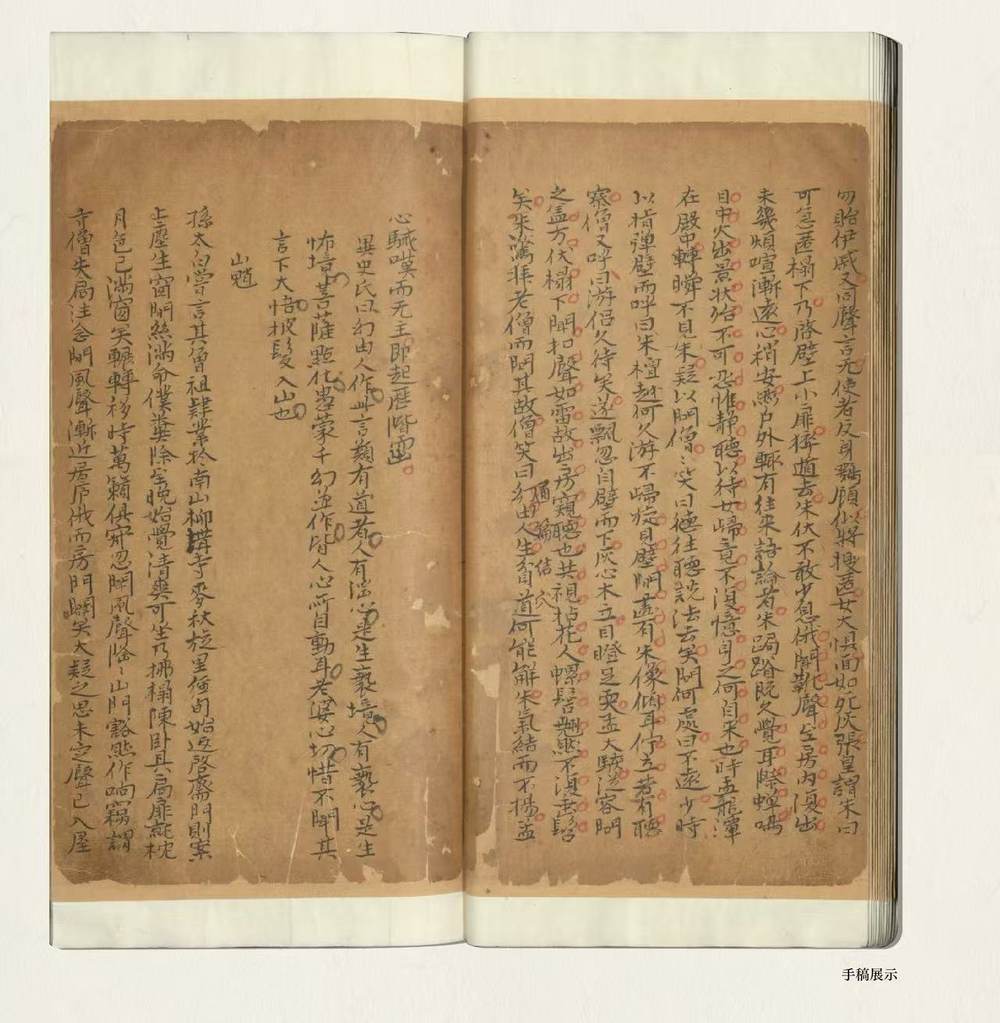 勿貽伊戚又同聲言无使者反身鶚顧似將搜匿女大惧面如死灰張皇謂朱曰
可急匿榻下乃啓壁上小扉猝遁去朱伏不敢少息俄聞靴聲至房内復出
未幾煩喧漸遠心稍安然户外輒有往來語論者朱跼蹐既久覺耳際蟬鳴
目中火出景狀殆不可忍惟静聽以待女歸竟不復憶身之何自来也時孟龍潭
在殿中轉瞬不見朱疑以問僧〻笑曰往聽說法去矣問何處曰不遠少時
以指彈壁而呼曰朱檀越何久游不歸旋見壁間畫有朱像傾耳佇立若有聽
察僧又呼曰游侣久待矣遂飄忽自壁而下灰心木立目瞪足耎孟大駭從容問
之盖方伏榻下聞扣聲如雷故出房窺聽也共視拈花人螺髻翹然不復垂髫
矣朱驚拜老僧而問其故僧笑曰幻由人生貧道何能解朱氣結而不揚孟
通篇結穴
心駭嘆而无主即起歷階而出
異史氏曰幻由人作此言類有道者人有淫心是生褻境人有褻心是生
怖境菩薩點化愚蒙千幻並作皆人心所自動耳老婆心切惜不聞其
言下大悟披髮入山也
山魈
孫太白嘗言其曾祖肄業於南山柳溝寺麥秋旋里經旬始返啓齋門則案
上塵生窗間絲滿命僕糞除至晚始覺清爽可坐乃拂榻陳卧具扃扉就枕
月色已滿窗矣輾轉移時萬籟俱寂忽聞風聲隆〻山門豁然作响竊謂
寺僧失扃注念間風聲漸近居廬俄而房門闢矣大疑之思未定聲已入屋
手稿展示